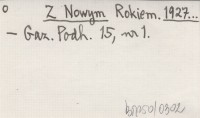 o Z Nowym Rokiem. 1927...
— Gaz. Podh. 15, nr 1.
bn250/0302